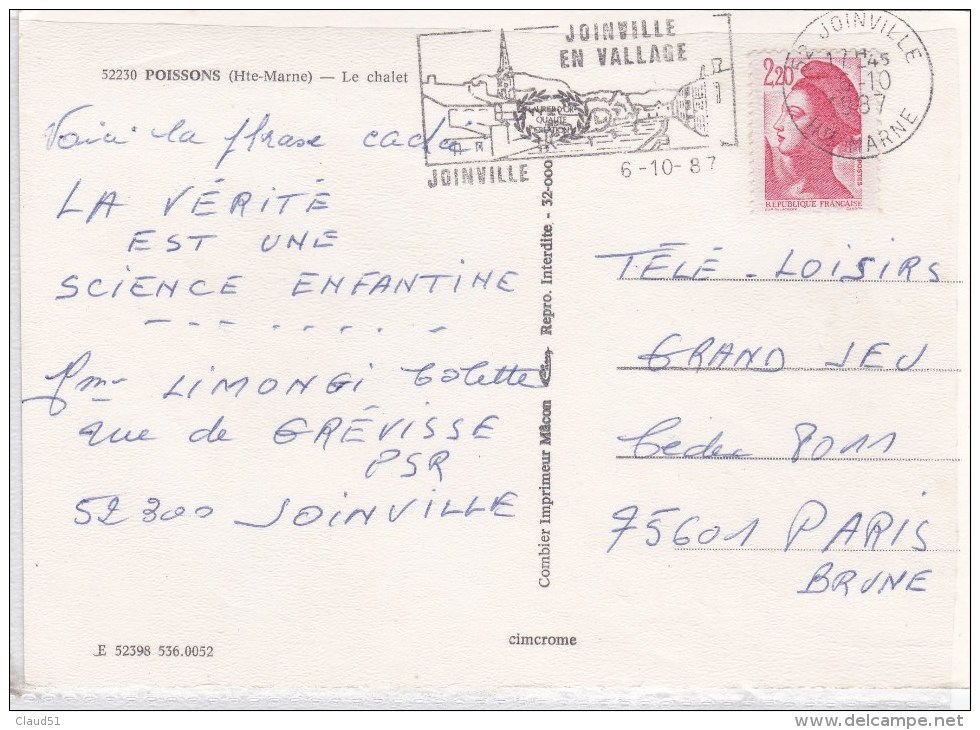 52230 POISSONS (Hte-Marne) — Le chalet
JOINVILLE
EN VALLAGE
JOINVILLE
6-10-87
52 JOINVILLE
17 H 45
6-10
1987
HTE MARNE
2,20
POSTES
REPUBLIQUE FRANÇAISE
Voici la phrase
LA VÉRITÉ
EST UNE
SCIENCE ENFANTINE
Mme LIMONGI Colette
rue de GRÉVISSE
PSR
52300 JOINVILLE
Combier Imprimeur Mâcon Repro. Interdite - 32-000
TÉLÉ-LOISIRS
GRAND JEU
Cedex 8011
75601 PARIS
BRUNE
E 52398 536.0052
cimcrome
Claud51
www.delcampe.net